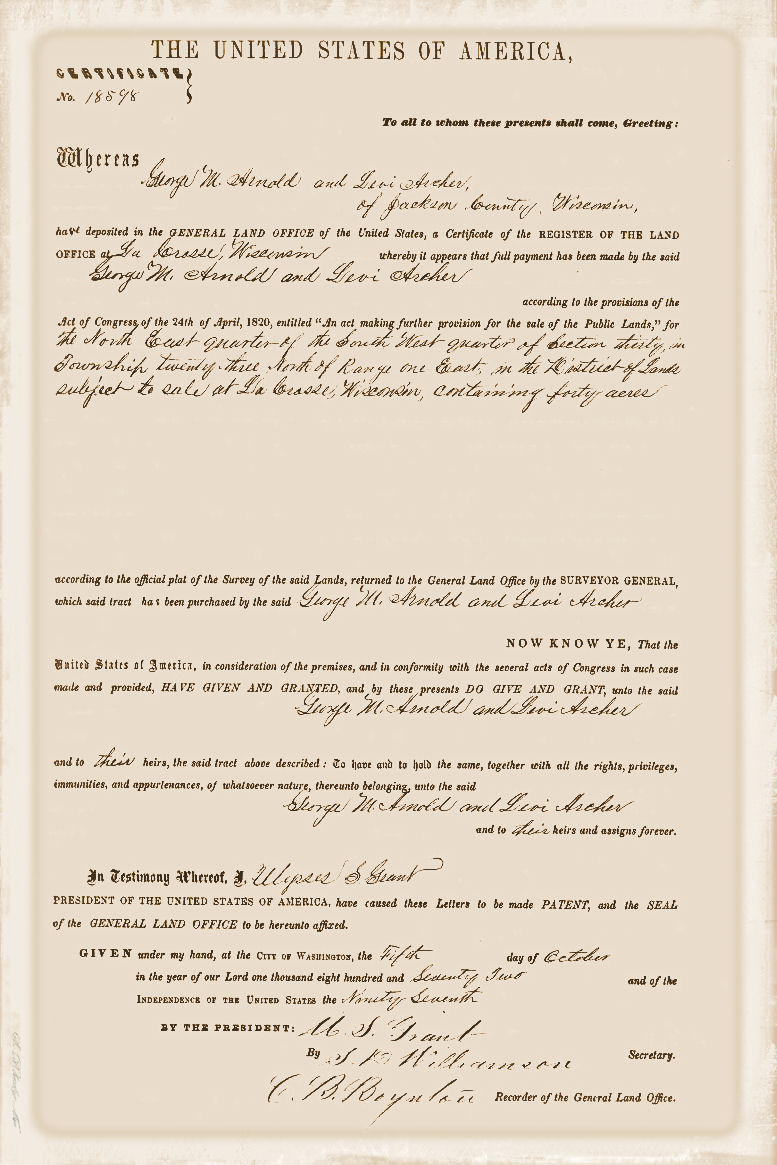 THE UNITED STATES OF AMERICA,
CERTIFICATE
No. 18598
To all to whom these presents shall come, Greeting:
Whereas George M. Arnold and Levi Archer,
of Jackson County, Wisconsin,
have deposited in the GENERAL LAND OFFICE of the United States, a Certificate of the REGISTER OF THE LAND
OFFICE at La Crosse, Wisconsin whereby it appears that full payment has been made by the said
George M. Arnold and Levi Archer
according to the provisions of the
Act of Congress of the 24th of April, 1820, entitled "An act making further provision for the sale of the Public Lands," for
the North East quarter of the South West quarter of Section thirty, in
Township twenty three North of Range one East, in the District of Lands
subject to sale at La Crosse, Wisconsin, containing forty acres
according to the official plat of the Survey of the said Lands, returned to the General Land Office by the SURVEYOR GENERAL,
which said tract has been purchased by the said George M. Arnold and Levi Archer
NOW KNOW YE, That the
United States of America, in consideration of the premises, and in conformity with the several acts of Congress in such case
made and provided, HAVE GIVEN AND GRANTED, and by these presents DO GIVE AND GRANT, unto the said
George M. Arnold and Levi Archer
and to their heirs, the said tract above described: To have and to hold the same, together with all the rights, privileges,
immunities, and appurtenances, of whatsoever nature, thereunto belonging, unto the said
George M. Arnold and Levi Archer
and to their heirs and assigns forever.
In Testimony Whereof, I, Ulysses S Grant
PRESIDENT OF THE UNITED STATES OF AMERICA, have caused these Letters to be made PATENT, and the SEAL
of the GENERAL LAND OFFICE to be hereunto affixed.
GIVEN under my hand, at the CITY OF WASHINGTON, the Fifth day of October
in the year of our Lord one thousand eight hundred and Seventy Two and of the
INDEPENDENCE OF THE UNITED STATES the Ninety Seventh
BY THE PRESIDENT: U. S. Grant
By S. D. Williamson Secretary.
C. B. Boynton Recorder of the General Land Office.